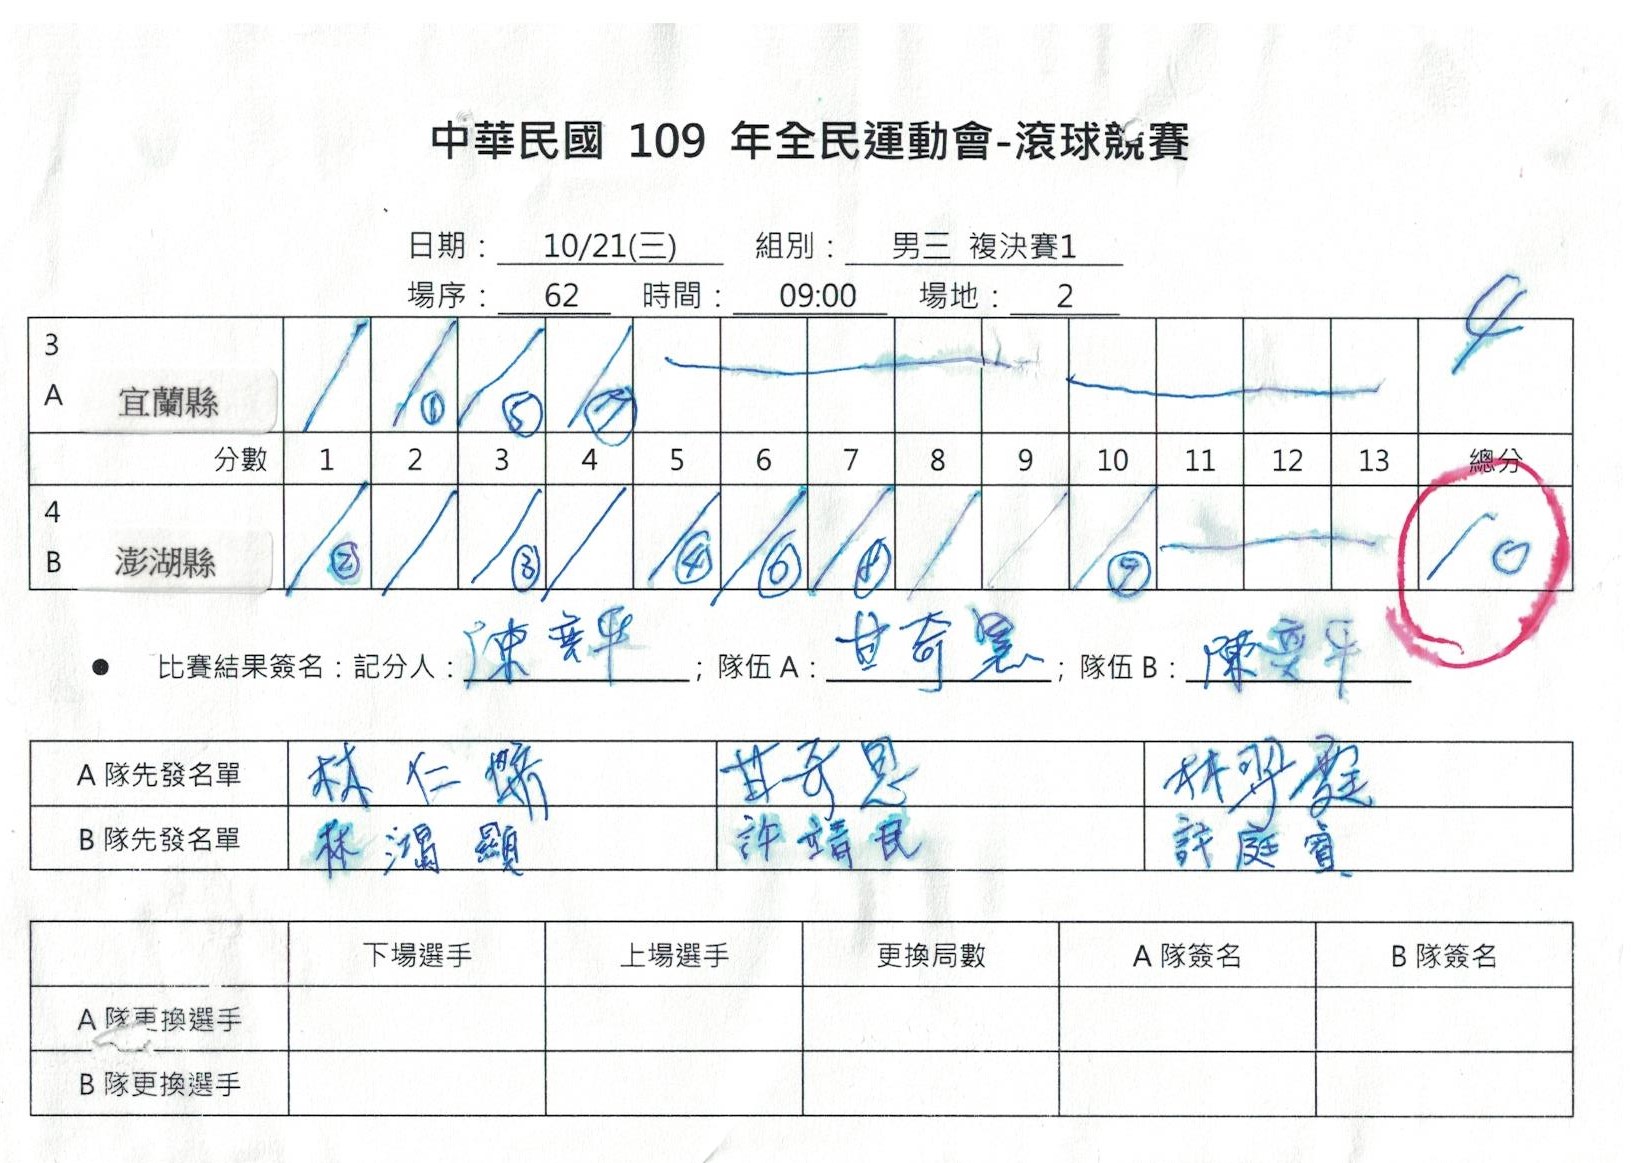 中華民國 109 年全民運動會-滾球競賽
日期： 10/21(三) 組別： 男三 複決賽1
場序： 62 時間： 09:00 場地： 2
3
A 宜蘭縣 ① ⑤ ⑦ 4
分數 1 2 3 4 5 6 7 8 9 10 11 12 13 總分
4
B 澎湖縣 ② ③ ④ ⑥ ⑧ ⑨ 10
● 比賽結果簽名：記分人：陳奕平；隊伍 A：甘奇恩；隊伍 B：陳奕平
A 隊先發名單 林仁 甘奇恩 林羿霆
B 隊先發名單 林鴻顯 許靖民 許庭賓
下場選手 上場選手 更換局數 A 隊簽名 B 隊簽名
A 隊更換選手
B 隊更換選手